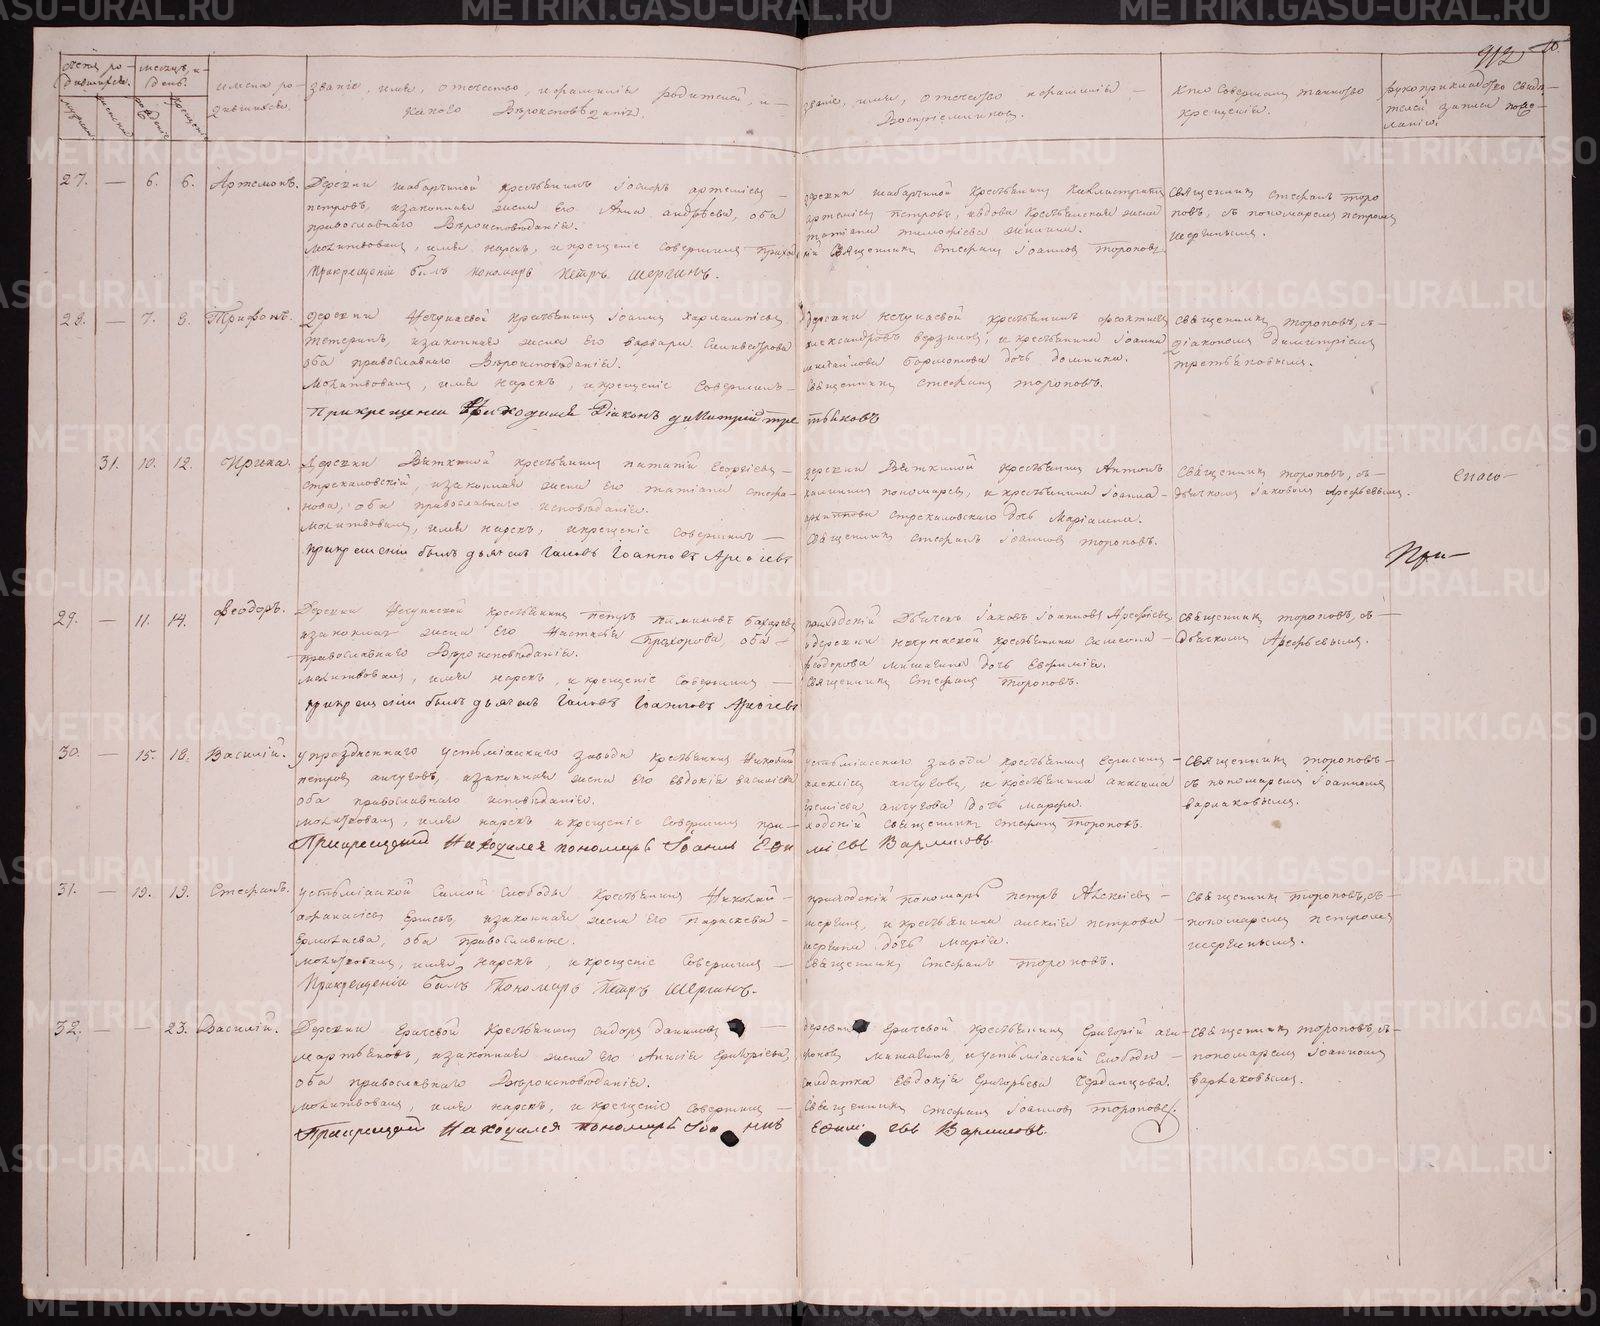 912
Счетъ ро-
дившихся.
мѣсяцъ, и
день.
имена ро-
дившихся.
званіе, имя, отечество, и фамилія родителей, и
какого Вѣроисповѣданія.
званіе, имя, отечество и фамилія
Воспріемниковъ.
Кто совершалъ таинство
крещенія.
рукоприкладство свидѣ-
телей записи по же-
ланію.
27. — 6. 6. Артемонъ.
Деревни шабарчиной крестьянинъ Іосифъ артеміевъ
петровъ, изаконная жена его Анна андрѣева, оба
православнаго Вѣроисповѣданія.
Молитвовалъ, имя нарекъ, и крещеніе совершилъ Приход-
Прикрещеніи былъ пономарь Петръ Шергинъ.
деревни шабарчиной крестьянинъ
артеміевъ петровъ, ивдова крестьянская жена
татіана тимофѣева
скій Священникъ Стефанъ Іоанновъ Тороповъ
Священникъ Стефанъ Торо
повъ, съ пономаремъ петромъ
шергинымъ.
28. — 7. 8. Трифонъ.
Деревни Нечунаевой крестьянинъ Іоаннъ Харлампіевъ
тетеринъ, изаконная жена его варвара Силивестрова
оба православнаго Вѣроисповѣданія.
Молитвовалъ, имя нарекъ, икрещеніе совершилъ —
Прикрещении Находился Діаконъ димитрій тре
деревни нечунаевой крестьянинъ феоктистъ
александровъ верзиловъ, и крестьянина Іоанна
михайлова бармотова дочь домника.
Священникъ Стефанъ тороповъ.
тьяковъ
Священникъ тороповъ, съ —
діакономъ димитріемъ
третьяковымъ.
31. 10. 12. Ирина.
Деревни Вяткиной крестьянинъ ипатій Георгіевъ —
Стрекаловскій, изаконная жена его татіана стефа-
нова, оба православнаго исповѣданія.
Молитвовалъ, имя нарекъ, икрещеніе совершилъ —
прикрещеніи былъ дьячекъ Іаковъ Іоанновъ Арефіевъ
деревни Вяткиной крестьянинъ Антонъ
пономаревъ, и крестьянина Іоанна —
Стрекаловскаго дочь Маріамна.
Священникъ Стефанъ Іоанновъ тороповъ.
Священникъ тороповъ, съ —
дьячкомъ Іаковомъ Арефьевымъ.
Спасо-
При—
29. — 11. 14. Феодоръ.
Деревни Нечунаевой крестьянинъ Петръ Пименовъ бахаревъ
изаконная жена его Настасья Прохорова, оба —
православнаго Вѣроисповѣданія.
Молитвовалъ, имя нарекъ, и крещеніе совершилъ —
прикрещеніи былъ дьячекъ Іаковъ Іоанновъ Арефіевъ
приходскій Дьячекъ Іаковъ Іоанновъ Арефіевъ,
идеревни нечунаевской крестьянина Симеона —
феодорова мишагина дочь Евфимія.
Священникъ Стефанъ Тороповъ.
Священникъ тороповъ, съ —
дьячкомъ Арефьевымъ.
30. — 15. 18. Василій.
упраздненнаго устьміасскаго завода крестьянинъ Николай
петровъ анчуговъ, изаконная жена его евдокія васильева
оба православнаго исповѣданія.
Молитвовалъ, имя нарекъ икрещеніе совершилъ при—
Прикрещеній Находился пономарь Іоаннъ Ефи
устьміасскаго завода крестьянинъ
алексіевъ анчуговъ, и крестьянина
Еремѣева анчугова дочь марфа.
ходскій Священникъ Стефанъ Тороповъ.
міевъ Варлаковъ
Священникъ тороповъ —
съ пономаремъ Іоанномъ
варлаковымъ.
31. — 19. 19. Стефанъ.
устьміасской Самой Слободы Крестьянинъ Николай —
афанасіевъ Ершовъ, изаконная жена его Параскева —
Ермолаева, оба православные.
Молитвовалъ, имя нарекъ, и крещеніе Совершилъ —
Прикрещеніи былъ Пономарь Петръ Шергинъ.
приходскій пономарь петръ Алексіевъ —
шергинъ, и крестьянина алексія петрова —
шергина дочь Марія.
Священникъ Стефанъ тороповъ.
Священникъ тороповъ, съ —
пономаремъ петромъ
шергинымъ.
32. — — 23. Василій.
Деревни Ерачевой крестьянинъ сидоръ даниловъ —
мартьяновъ, изаконная жена его Анисія Григоріева,
оба православнаго Вѣроисповѣданія.
Молитвовалъ, имя нарекъ, и крещеніе совершилъ —
Прикрещеній Находился пономарь Іоаннъ
деревни Ерачевой крестьянинъ Григорій ага-
фоновъ мишагинъ, и устьміасской слободы —
солдатка Евдокія Григорьева Черданцова.
Священникъ Стефанъ Іоанновъ Тороповъ.
Варлаковъ.
Священникъ тороповъ, съ —
пономаремъ Іоанномъ
варлаковымъ.
METRIKI.GASO-URAL.RU